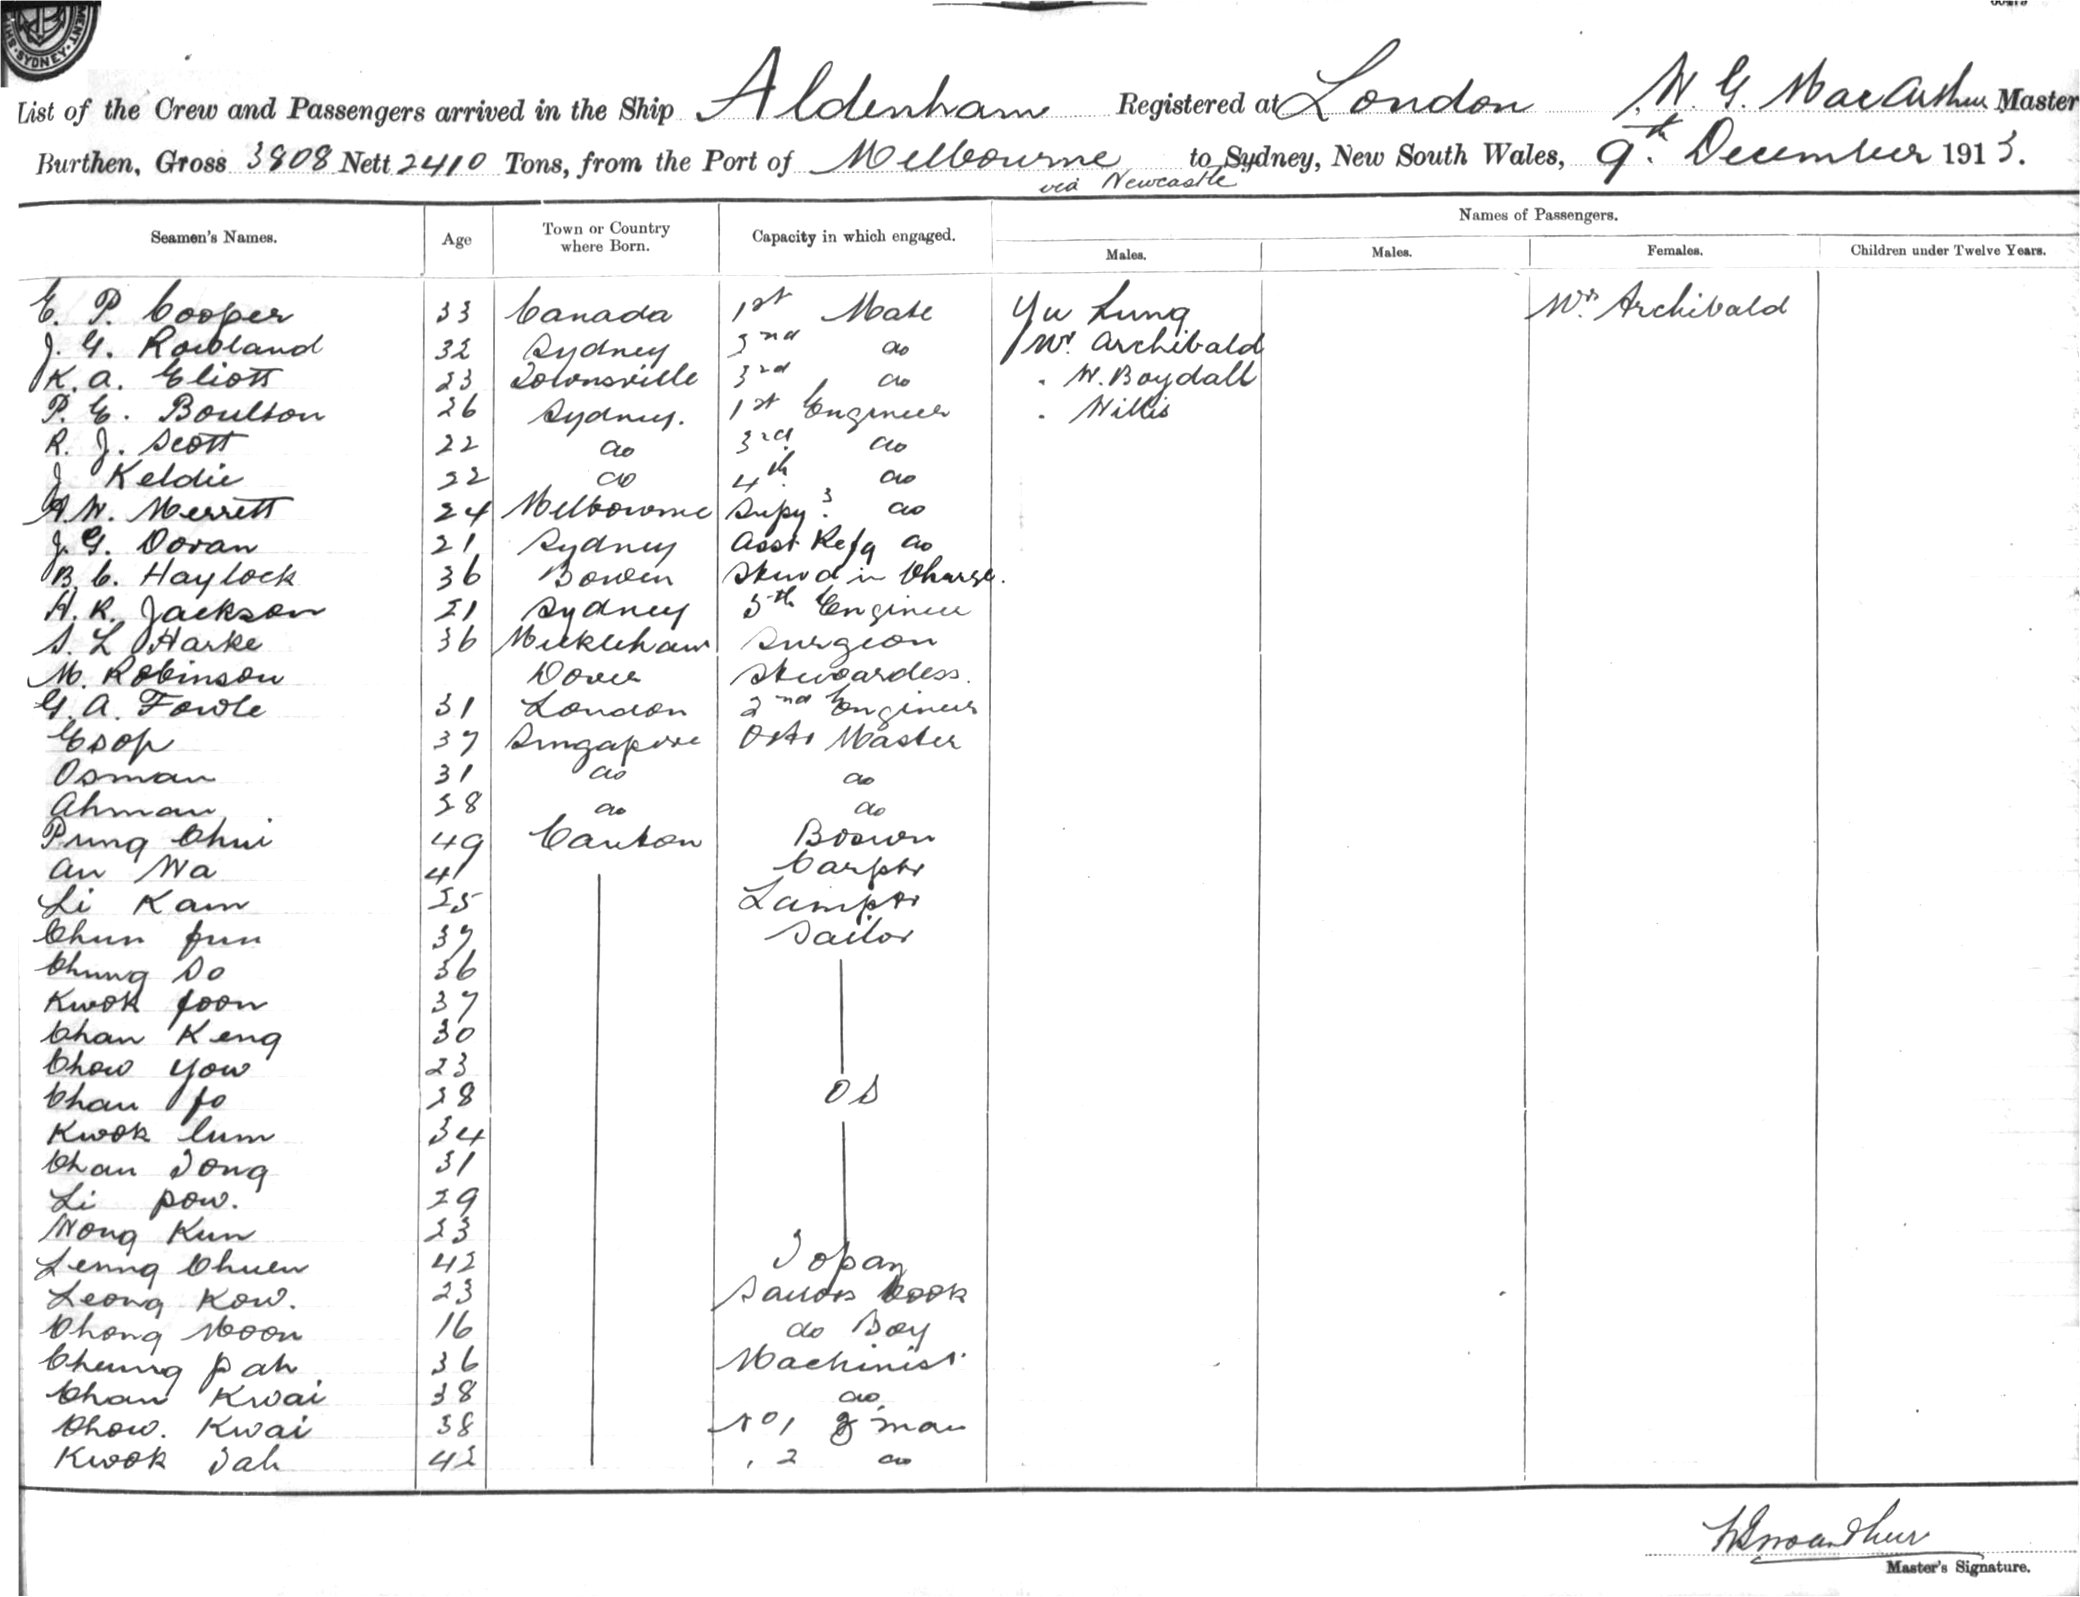 SYDNEY
List of the Crew and Passengers arrived in the Ship Aldenham Registered at London W. G. MacArthur Master
Burthen, Gross 3808 Nett 2410 Tons, from the Port of Melbourne to Sydney, New South Wales, 9th December 1913.
via Newcastle
Names of Passengers.
Seamen's Names. Age Town or Country where Born. Capacity in which engaged. Males. Males. Females. Children under Twelve Years.
E. P. Cooper 33 Canada 1st Mate Yu Lung Mrs Archibald
J. G. Rowland 32 Sydney 2nd do Mr Archibald
K. A. Eliott 23 Townsville 3rd do " W. Boydall
P. E. Boulton 26 Sydney. 1st Engineer " Willis
R. J. Scott 22 do 3rd do
J Keldie 22 do 4th do
A. W. Merrett 24 Melbourne Supy 3 do
J. G. Doran 21 Sydney Asst Refg do
B. C. Haylock 36 Bowen Stewd in Charge.
H. R. Jackson 21 Sydney 5th Engineer
S. L Harke 36 Mickleham Surgeon
M. Robinson Dover Stewardess.
G. A. Fowle 31 London 2nd Engineer
Esop 37 Singapore Qtr Master
Osman 31 do do
Ahman 28 do do
Pung Chui 49 Canton Boswn
Au Wa 41 Carptr
Li Kam 25 Lamptr
Chun fun 37 Sailor
Chung So 36
Kwok foon 37
Chan Keng 30
Chow You 23
Chan fo 28 O S
Kwok lum 34
Chan Tong 31
Li pow. 29
Wong Kun 23
Leung Chuen 42 Topay
Leong Kow. 23 Sailors Cook
Chong Moon 16 do Boy
Cheung pah 36 Machinist
Chan Kwai 38 do
Chow. Kwai 38 No 1 man
Kwok Tah 42 " 2 do
Master's Signature.